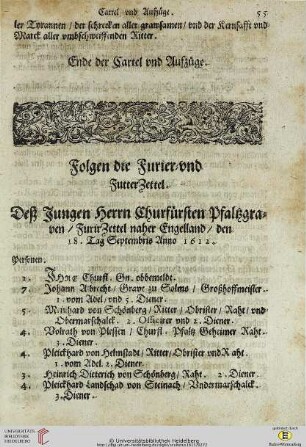 Cartel vnd Auffzüge. 55
ler Tyrannen / der schrecken aller grawsamen / vnd der Kernsafft vnd
Marck aller vmbschweiffenden Ritter.
Ende der Cartel vnd Auffzüge.
Folgen die Furier vnd
Futter Zettel.
Deß Jungen Herrn Churfürsten Pfaltzgra-
ven / Furir Zettel naher Engelland / den
18. Tag Septembris Anno 1612.
Personen.
2. Ihre Churfl. Gn. obbemeldt.
7. Johann Albrecht / Grave zu Solms / Großhoffmeister.
1. vom Adel / vnd 5. Diener.
5. Meinhard von Schönberg / Ritter / Obrister / Raht / vnd
Obermarschalck. 2. vnd 2. Diener.
4. Volrath von Plessen / Churfl. Pfaltz Geheimer Raht.
3. Diener.
4. Pleickhard von Helmstadt / Ritter / Obrister vnd Raht.
1. vom Adel. 2. Diener.
3. Heinrich Dieterich von Schönberg / Raht. 2. Diener.
4. Pleickhard Landschad von Steinach / Vndermarschalck.
3. Diener.
UNIVERSITÄTS-
BIBLIOTHEK
HEIDELBERG
© Universitätsbibliothek Heidelberg